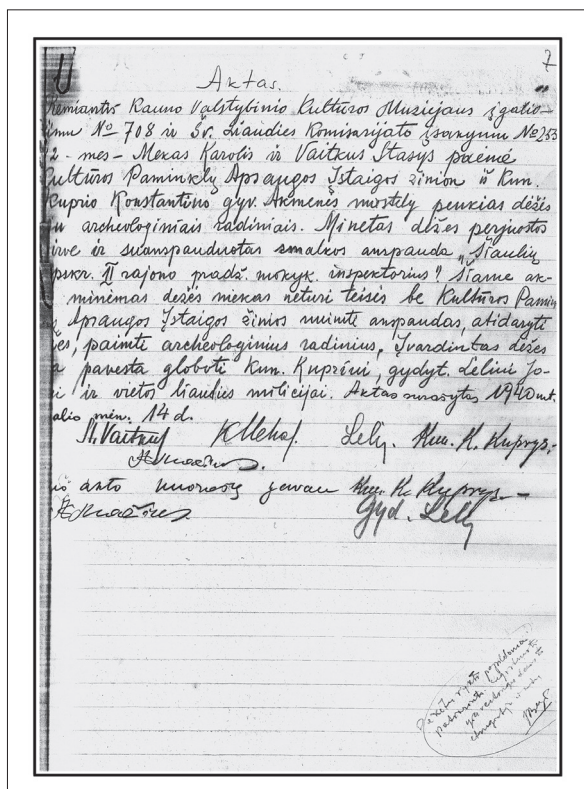 7
Aktas.
Remiantis Kauno Valstybinio Kultūros Muziejaus įgalio-
jimu № 708 ir Šv. Liaudies Komisarijato įsakymu № 253
2 - mes - Mekas Karolis ir Vaitkus Stasys paėmė
Kultūros Paminklų Apsaugos Įstaigos žinion iš kun.
Kuprio Konstantino gyv. Akmenės mostely penkias dėžės
su archeologiniais radiniais. Minėtas dėžes perjuostos
virve ir suanspauduotas smalkos anspauda „Šiaulių
apskr. II rajono pradž. mokyk. inspektorius". Šiame ak-
minėmas dėžės niekas neturi teisės be Kultūros Pamin
Apsaugos Įstaigos žinios nuimti anspaudas, atidaryti
paimti archeologinius radinius. Įvardintas dėžes
pavesta globoti kun. Kuprini, gydyt. Leliui Jo-
ir vietos liaudies milicijai. Aktas surašytas 1940 mt.
mėn. 14 d.
St. Vaitkus K Mekas. Lelį. Kun. K. Kuprys.
akto nuorašą gavau Kun. K. Kuprys
Gyd. Lelį